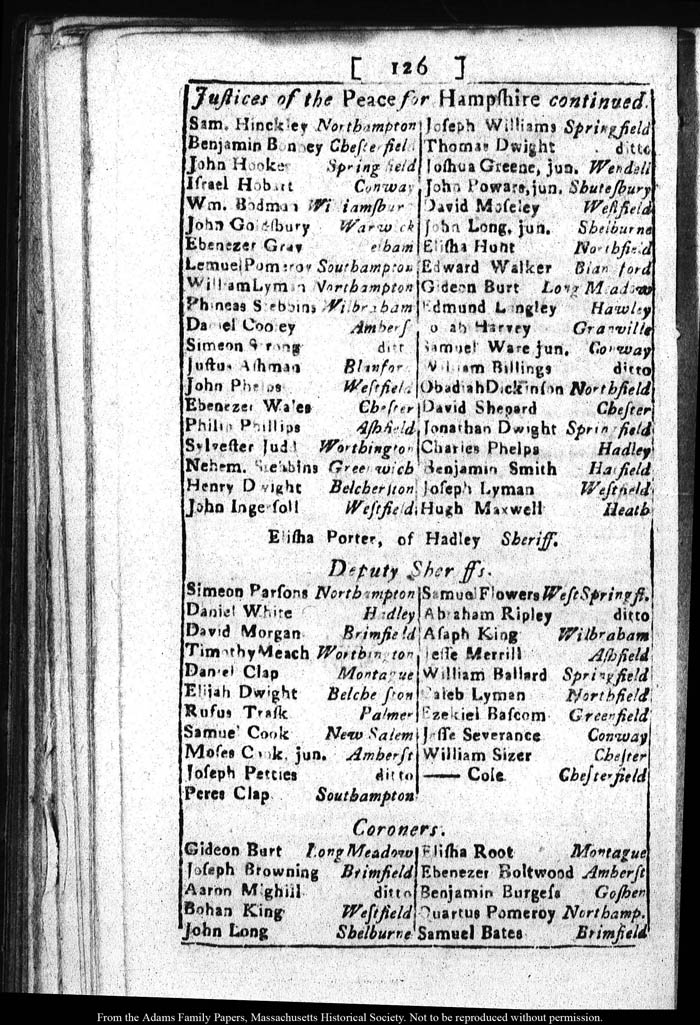 [ 126 ]
Juſtices of the Peace for Hampſhire continued.
Sam. Hinckley Northampton
Benjamin Bonney Cheſterfield
John Hooker Springfield
Iſrael Hobart Conway
Wm. Bodman Williamſbur
John Goldſbury Warwick
Ebenezer Gray elham
Lemuel Pomeroy Southampton
William Lyman Northampton
Phineas Stebbins Wilbraham
Daniel Cooley Amherſ
Simeon Strong ditt
Juſtus Aſhman Blanfor
John Phelps Weſtfield
Ebenezer Wales Cheſter
Philip Phillips Aſhfield
Sylveſter Judd Worthington
Nehem. Stebbins Greenwich
Henry Dwight Belcherſton
John Ingerſoll Weſtfield
Joſeph Williams Springfield
Thomas Dwight ditto
Joſhua Greene, jun. Wendell
John Powars, jun. Shuteſbury
David Moſeley Weſtfield
John Long, jun. Shelburne
Eliſha Hunt Northfield
Edward Walker Blandford
Gideon Burt Long Meadow
Edmund Longley Hawley
Harvey Granville
Samuel Ware jun. Conway
William Billings ditto
Obadiah Dickinſon Northfield
David Shepard Cheſter
Jonathan Dwight Springfield
Charles Phelps Hadley
Benjamin Smith Hatfield
Joſeph Lyman Weſtfield
Hugh Maxwell Heath
Eliſha Porter, of Hadley Sheriff.
Deputy Sheriffs.
Simeon Parſons Northampton
Daniel White Hadley
David Morgan Brimfield
Timothy Meach Worthington
Daniel Clap Montague
Elijah Dwight Belcherſton
Rufus Traſk Palmer
Samuel Cook New Salem
Moſes Cook, jun. Amherſt
Joſeph Petties ditto
Peres Clap Southampton
Samuel Flowers Weſt Springfi.
Abraham Ripley ditto
Aſaph King Wilbraham
Jeſſe Merrill Aſhfield
William Ballard Springfield
Caleb Lyman Northfield
Ezekiel Baſcom Greenfield
Jeſſe Severance Conway
William Sizer Cheſter
—— Cole Cheſterfield
Coroners.
Gideon Burt Long Meadow
Joſeph Browning Brimfield
Aaron Mighill ditto
Bohan King Weſtfield
John Long Shelburne
Eliſha Root Montague
Ebenezer Boltwood Amherſt
Benjamin Burgeſs Goſhen
Quartus Pomeroy Northamp.
Samuel Bates Brimfield
From the Adams Family Papers, Massachusetts Historical Society. Not to be reproduced without permission.